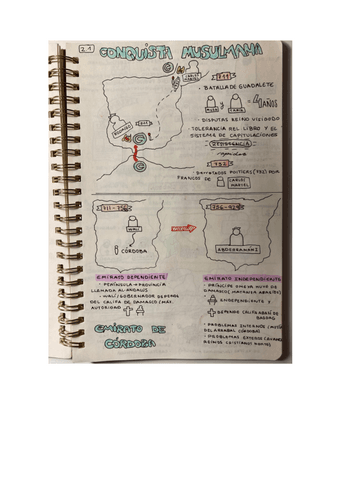 2.1 CONQUISTA MUSULMANA
CARLOS
MARTEL
711
· BATALLA DE GUADALETE
MUZA TARIK 4 AÑOS
· DISPUTAS REINO VISIGODO
· TOLERANCIA DEL LIBRO Y EL
SISTEMA DE CAPITULACIONES
RODRIGO
732
· DERROTADOS POITIERS (732) POR
FRANCOS DE CARLOS
MARTEL
711-756
WALI
CÓRDOBA
756-929
ABDERRAMÁN I
EMIRATO DEPENDIENTE
· PENÍNSULA → PROVINCIA
LLAMADA AL-ANDALUS
· WALI/GOBERNADOR DEPENDE
DEL CALIFA DE DAMASCO (MAX.
AUTORIDAD
EMIRATO INDEPENDIENTE
· PRÍNCIPE OMEYA HUYE DE
DAMASCO
INDEPENDIENTE Y
DEPENDE CALIFA ABASÍ DE
BAGDAD
· PROBLEMAS INTERNOS
ARRABAL CÓRDOBA)
· PROBLEMAS EXTERNOS
REINOS CRISTIANOS NORTE)
EMIRATO DE
CÓRDOBA